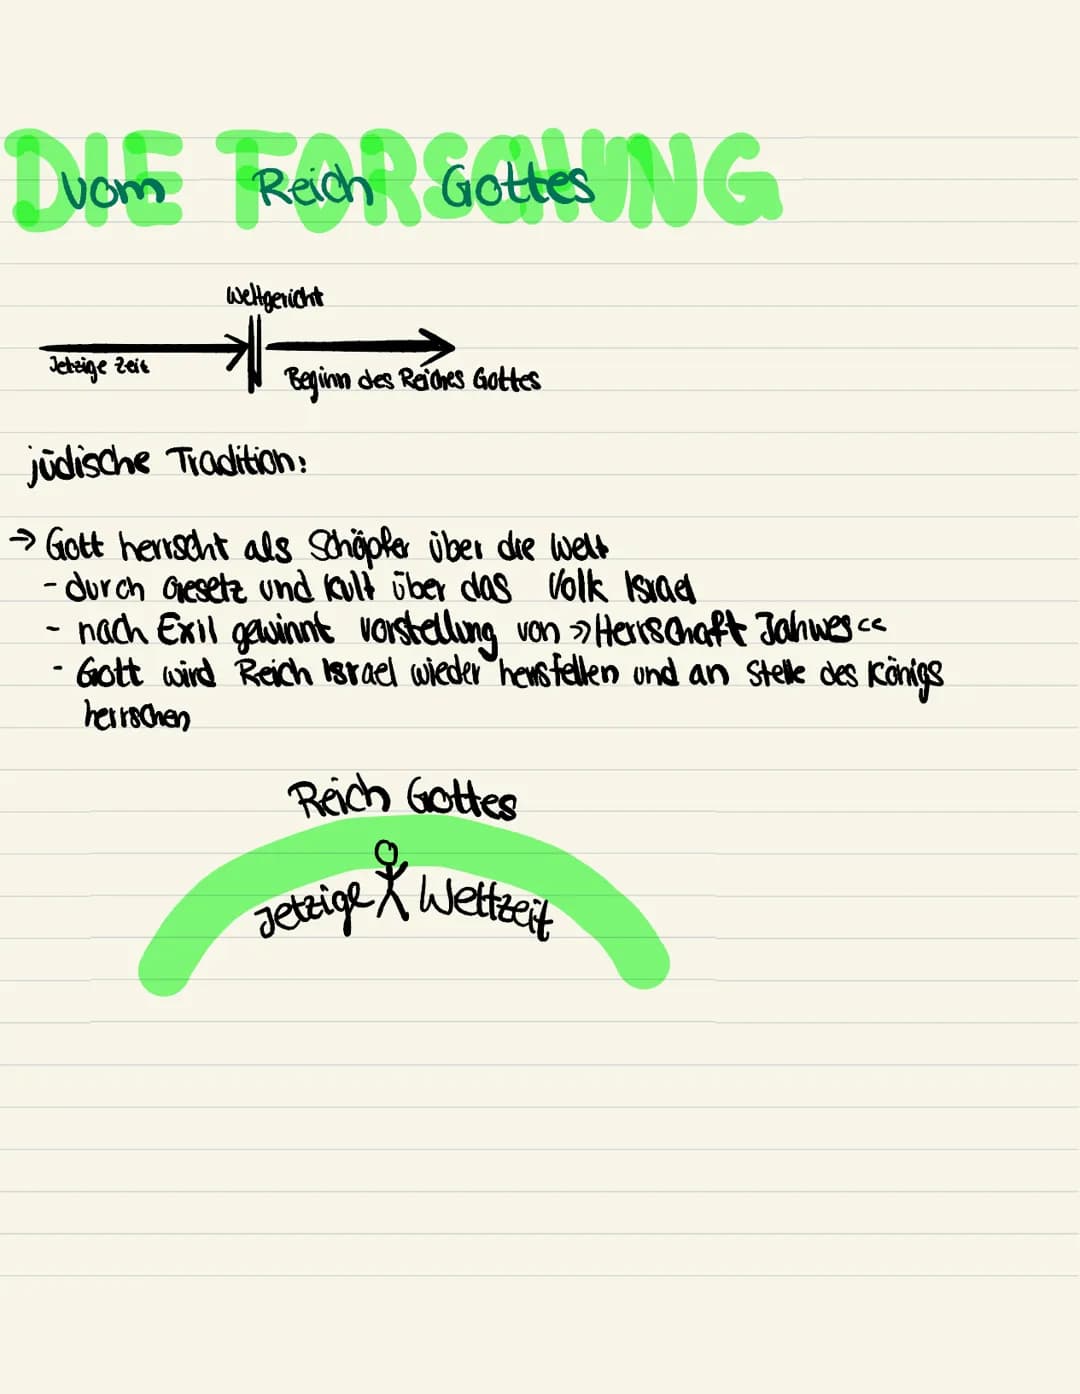 DIE FORSCHUNG
vom Reich Gottes
Weltgericht
Jetzige Zeit
Beginn des Reiches Gottes
jüdische Tradition:
→ Gott herrscht als Schöpfer über die Welt
- durch Gesetz und Kult über das Volk Israel
- nach Exil gewinnt Vorstellung von >>Herrschaft Jahwes<<
- Gott wird Reich Israel wieder herstellen und an Stelle des Königs
herrschen
Reich Gottes
Jetzige Weltzeit